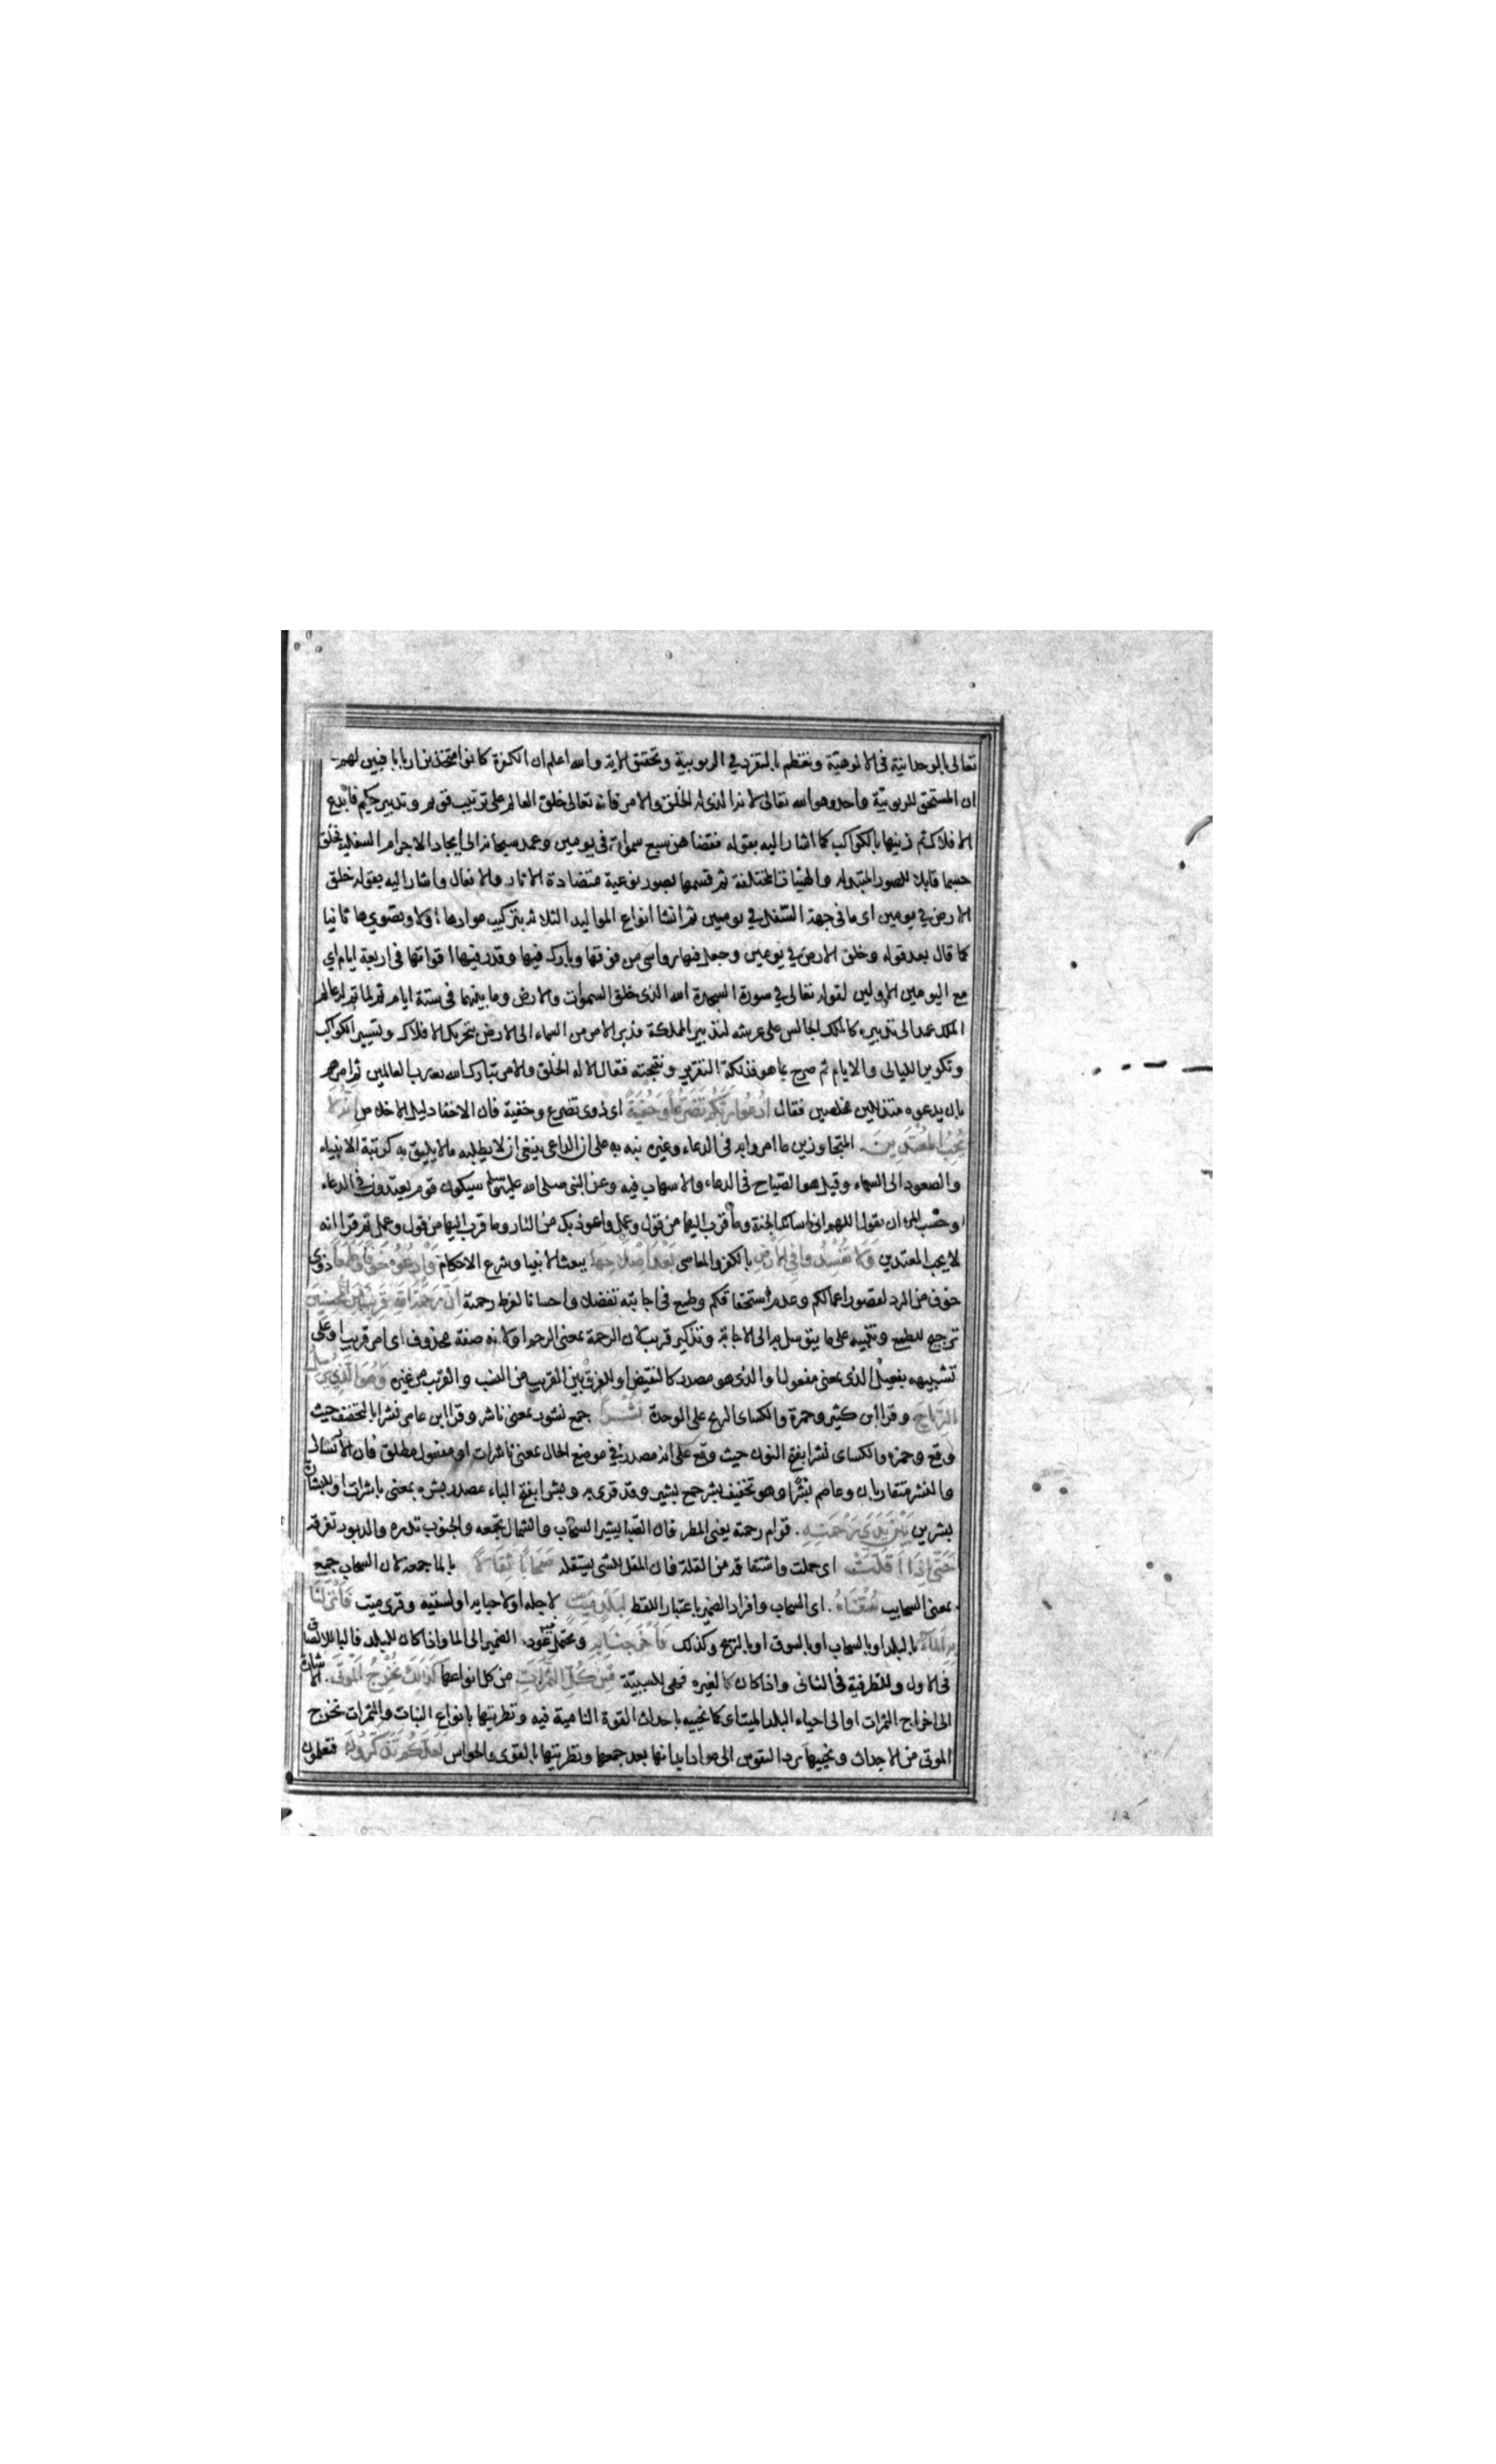 تعالى بالوحدانية فى الالوهية وتعظم بالتفرد في الربوبية وتحقيق الاية والله اعلم ان الكفرة كانوا متخذين اربابا فبين لهم
ان المستحق للربوبية واحد وهو الله تعالى لانه الذى له الخلق والامر فانه تعالى خلق العالم على ترتيب قويم وتدبير حكيم فابدع
الافلاك ثم زينها بالكواكب كما اشار اليه بقوله فقضاهن سبع سموات فى يومين وعمد سبحانه الى ايجاد الاجرام السفلية فخلق
جسما قابلا للصور المتبدلة والهيئات المختلفة ثم قسمها بصور نوعية متضادة الاثار والافعال واشار اليه بقوله خلق
الارض في يومين اى ما فى جهة السفل في يومين ثم انشا انواع المواليد الثلاثة بتركيب موادها اولا وتصويرها ثانيا
كما قال بعد قوله وخلق الارض في يومين وجعل فيها رواسى من فوقها وبارك فيها وقدر فيها اقواتها فى اربعة ايام اي
مع اليومين الاولين لقوله تعالى في سورة السجدة الله الذى خلق السموات والارض وما بينهما فى ستة ايام ثم لما تم له عالم
الملك عمد الى تدبيره كالملك الجالس على عرشه لتدبير المملكة فدبر الامر من السماء الى الارض بتحريك الافلاك وتسيير الكواكب
وتكوير الليالى والايام ثم صرح بما هو فذلكة التقرير ونتيجته فقال الا له الخلق والامر تبارك الله رب العالمين ثم امرهم
بان يدعوه متذللين مخلصين فقال ادعوا ربكم تضرعا وخفية اى ذوى تضرع وخفية فان الاخفا دليل الاخلاص انه لا
يحب المعتدين المتجاوزين ما امروا به فى الدعاء وغيره نبه به على ان الداعى ينبغى ان لا يطلب ما لا يليق به كرتبة الانبياء
والصعود الى السماء وقيل هو الصياح فى الدعاء والاسهاب فيه وعن النبى صلى الله عليه وسلم سيكون قوم يعتدون في الدعاء
وحسب المرء ان يقول اللهم انى اسالك الجنة وما قرب اليها من قول وعمل واعوذ بك من النار وما قرب اليها من قول وعمل ثم قرا انه
لا يحب المعتدين ولا تفسدوا فى الارض بالكفر والمعاصى بعد اصلاحها ببعث الانبيا وشرع الاحكام وادعوه خوفا وطمعا ذوى
خوف من الرد لقصور اعمالكم وعدم استحقاقكم وطمع فى اجابته تفضلا واحسانا لفرط رحمته ان رحمة الله قريب من المحسنين
ترجيح للطمع وتنبيه على ما يتوسل به الى الاجابة وتذكير قريب لان الرحمة بمعنى الرحم او لانه صفة محذوف اى امر قريب او على
تشبيهه بفعيل الذى بمعنى مفعول او الذى هو مصدر كالنقيض او للفرق بين القريب من النسب والقريب من غيره وهو الذي يرسل
الرياح وقرا ابن كثير وحمزة والكساى الريح على الوحدة نشرا جمع نشور بمعنى ناشر وقرا ابن عامر نشرا بالتخفيف حيث
وقع وحمزه والكساى نشرا بفتح النون حيث وقع على انه مصدر في موضع الحال بمعنى ناشرات او مفعول مطلق فان الارسال
والنشر متقاربان وعاصم بشرا وهو تخفيف بشر جمع بشير وقد قرى به وبشرا بفتح الباء مصدر بشره بمعنى باشرات او للبشارة
بشرين بين يدى رحمته قدام رحمته يعنى المطر فان الصبا يثير السحاب والشمال تجمعه والجنوب تدره والدبور تفرقه
حتى اذا اقلت اى حملت واشتقاقه من القلة فان المقل للشى يستقله سحابا ثقالا بالما جمعه لان السحاب جمع
بمعنى السحايب سقناه اى السحاب وافراد الضمير باعتبار اللفظ لبلد ميت لاجله او لاحيايه او لسقيه وقرى ميت فانزلنا
به الماء بالبلد او بالسحاب او بالسوق او بالريح وكذلك فاخرجنا به ويحتمل فيه عود الضمير الى الما واذا كان للبلد فالبا للالصاق
فى الاول وللظرفية فى الثانى واذا كان لغيره فهى للسببية من كل الثمرات من كل انواعها كذلك نخرج الموتى الاشارة
الى اخراج الثمرات او الى احياء البلد الميت اى كما نحييه باحداث القوة النامية فيه وتطريتها بانواع النبات والثمرات نخرج
الموتى من الاجداث ونحييها برد النفوس الى مواد ابدانها بعد جمعها وتطريتها بالقوى والحواس لعلكم تذكرون فتعلمون